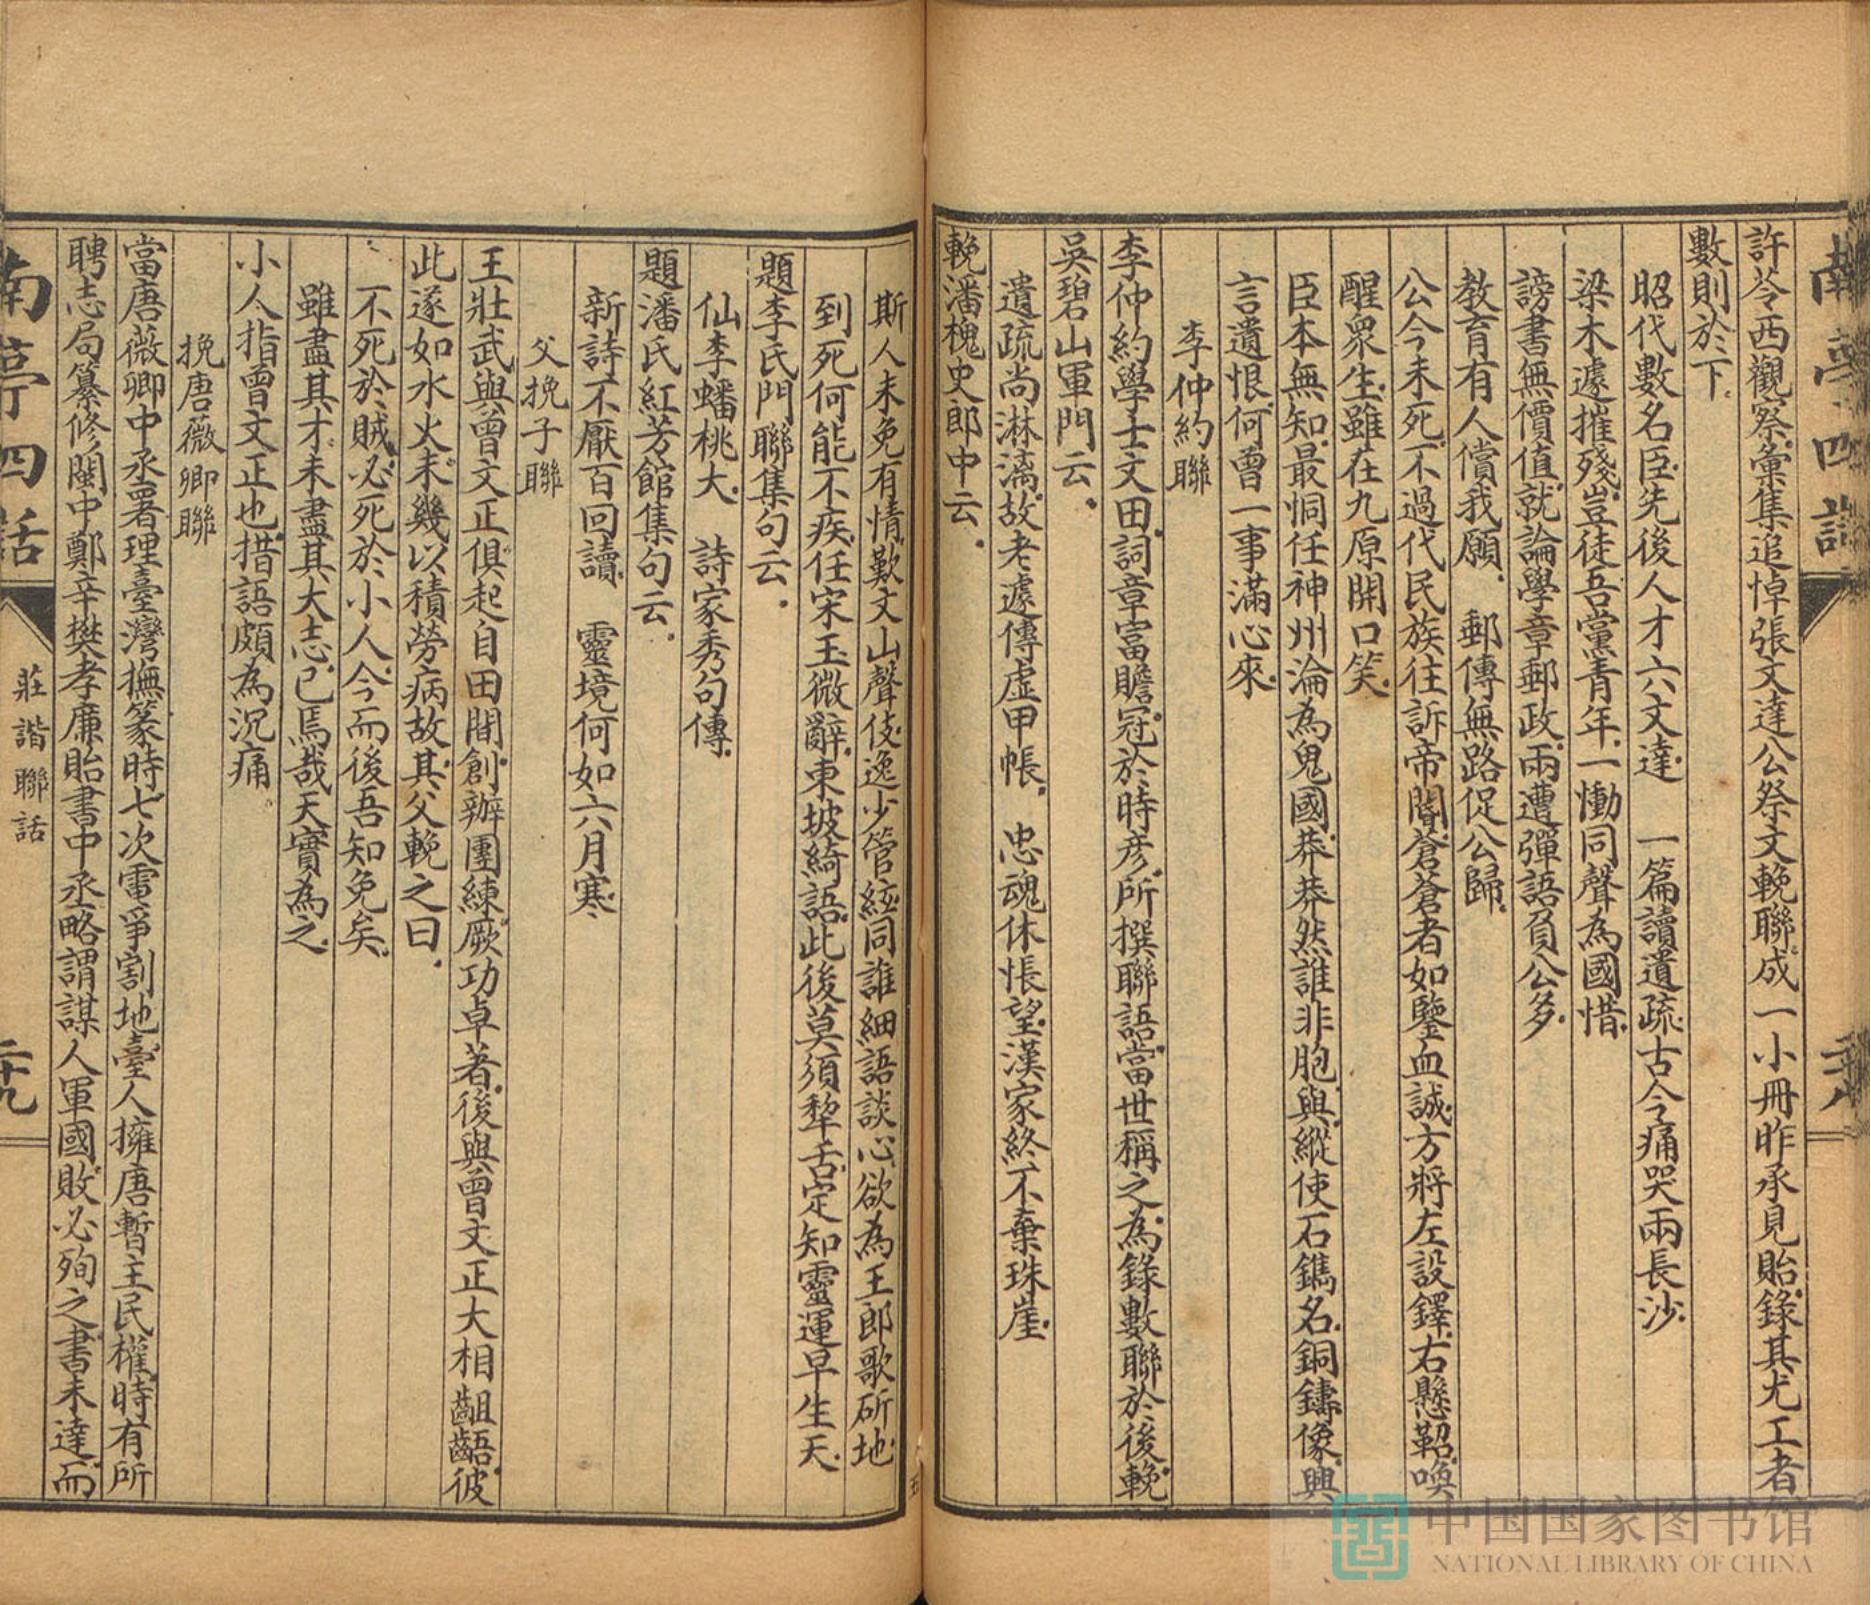 南亭四話
許苓西觀察彙集追悼張文達公祭文輓聯成一小冊昨承見貽錄其尤工者
數則於下
昭代數名臣先後人才六文達　一篇讀遺疏古今痛哭兩長沙
梁木遽摧殘豈徒吾黨青年一慟同聲為國惜
謗書無價值就論學章郵政兩遭彈語負公多
教育有人償我願　郵傳無路促公歸
公今未死不過代民族往訴帝閽蒼蒼者如鑒血誠方將左設鐸右懸鞀喚
醒眾生雖在九原開口笑
臣本無知最恫任神州淪為鬼國莽莽然誰非胞與縱使石鐫名銅鑄像興
言遺恨何曾一事滿心來
李仲約聯
李仲約學士文田詞章富贍冠於時彥所撰聯語當世稱之為錄數聯於後輓
吳碧山軍門云
遺疏尚淋漓故老遽傳虛甲帳　忠魂休悵望漢家終不棄珠崖
輓潘槐史郎中云
斯人未免有情歎文山聲伎逸少管絃同誰細語談心欲為王郎歌斫地
到死何能不疾任宋玉微辭東坡綺語此後莫須犂舌定知靈運早生天
題李氏門聯集句云
仙李蟠桃大　詩家秀句傳
題潘氏紅芳館集句云
新詩不厭百回讀　靈境何如六月寒
父挽子聯
王壯武與曾文正俱起自田間創辦團練厥功卓著後與曾文正大相齟齬彼
此遂如水火未幾以積勞病故其父輓之曰
不死於賊必死於小人今而後吾知免矣
雖盡其才未盡其大志已焉哉天實為之
小人指曾文正也措語頗為沉痛
挽唐薇卿聯
當唐薇卿中丞署理臺灣撫篆時七次電爭割地臺人擁唐暫主民權時有所
聘志局纂修閩中鄭辛樊孝廉貽書中丞略謂謀人軍國敗必殉之書未達而
南亭四話
莊諧聯話
二十九
中国国家图书馆
NATIONAL LIBRARY OF CHINA